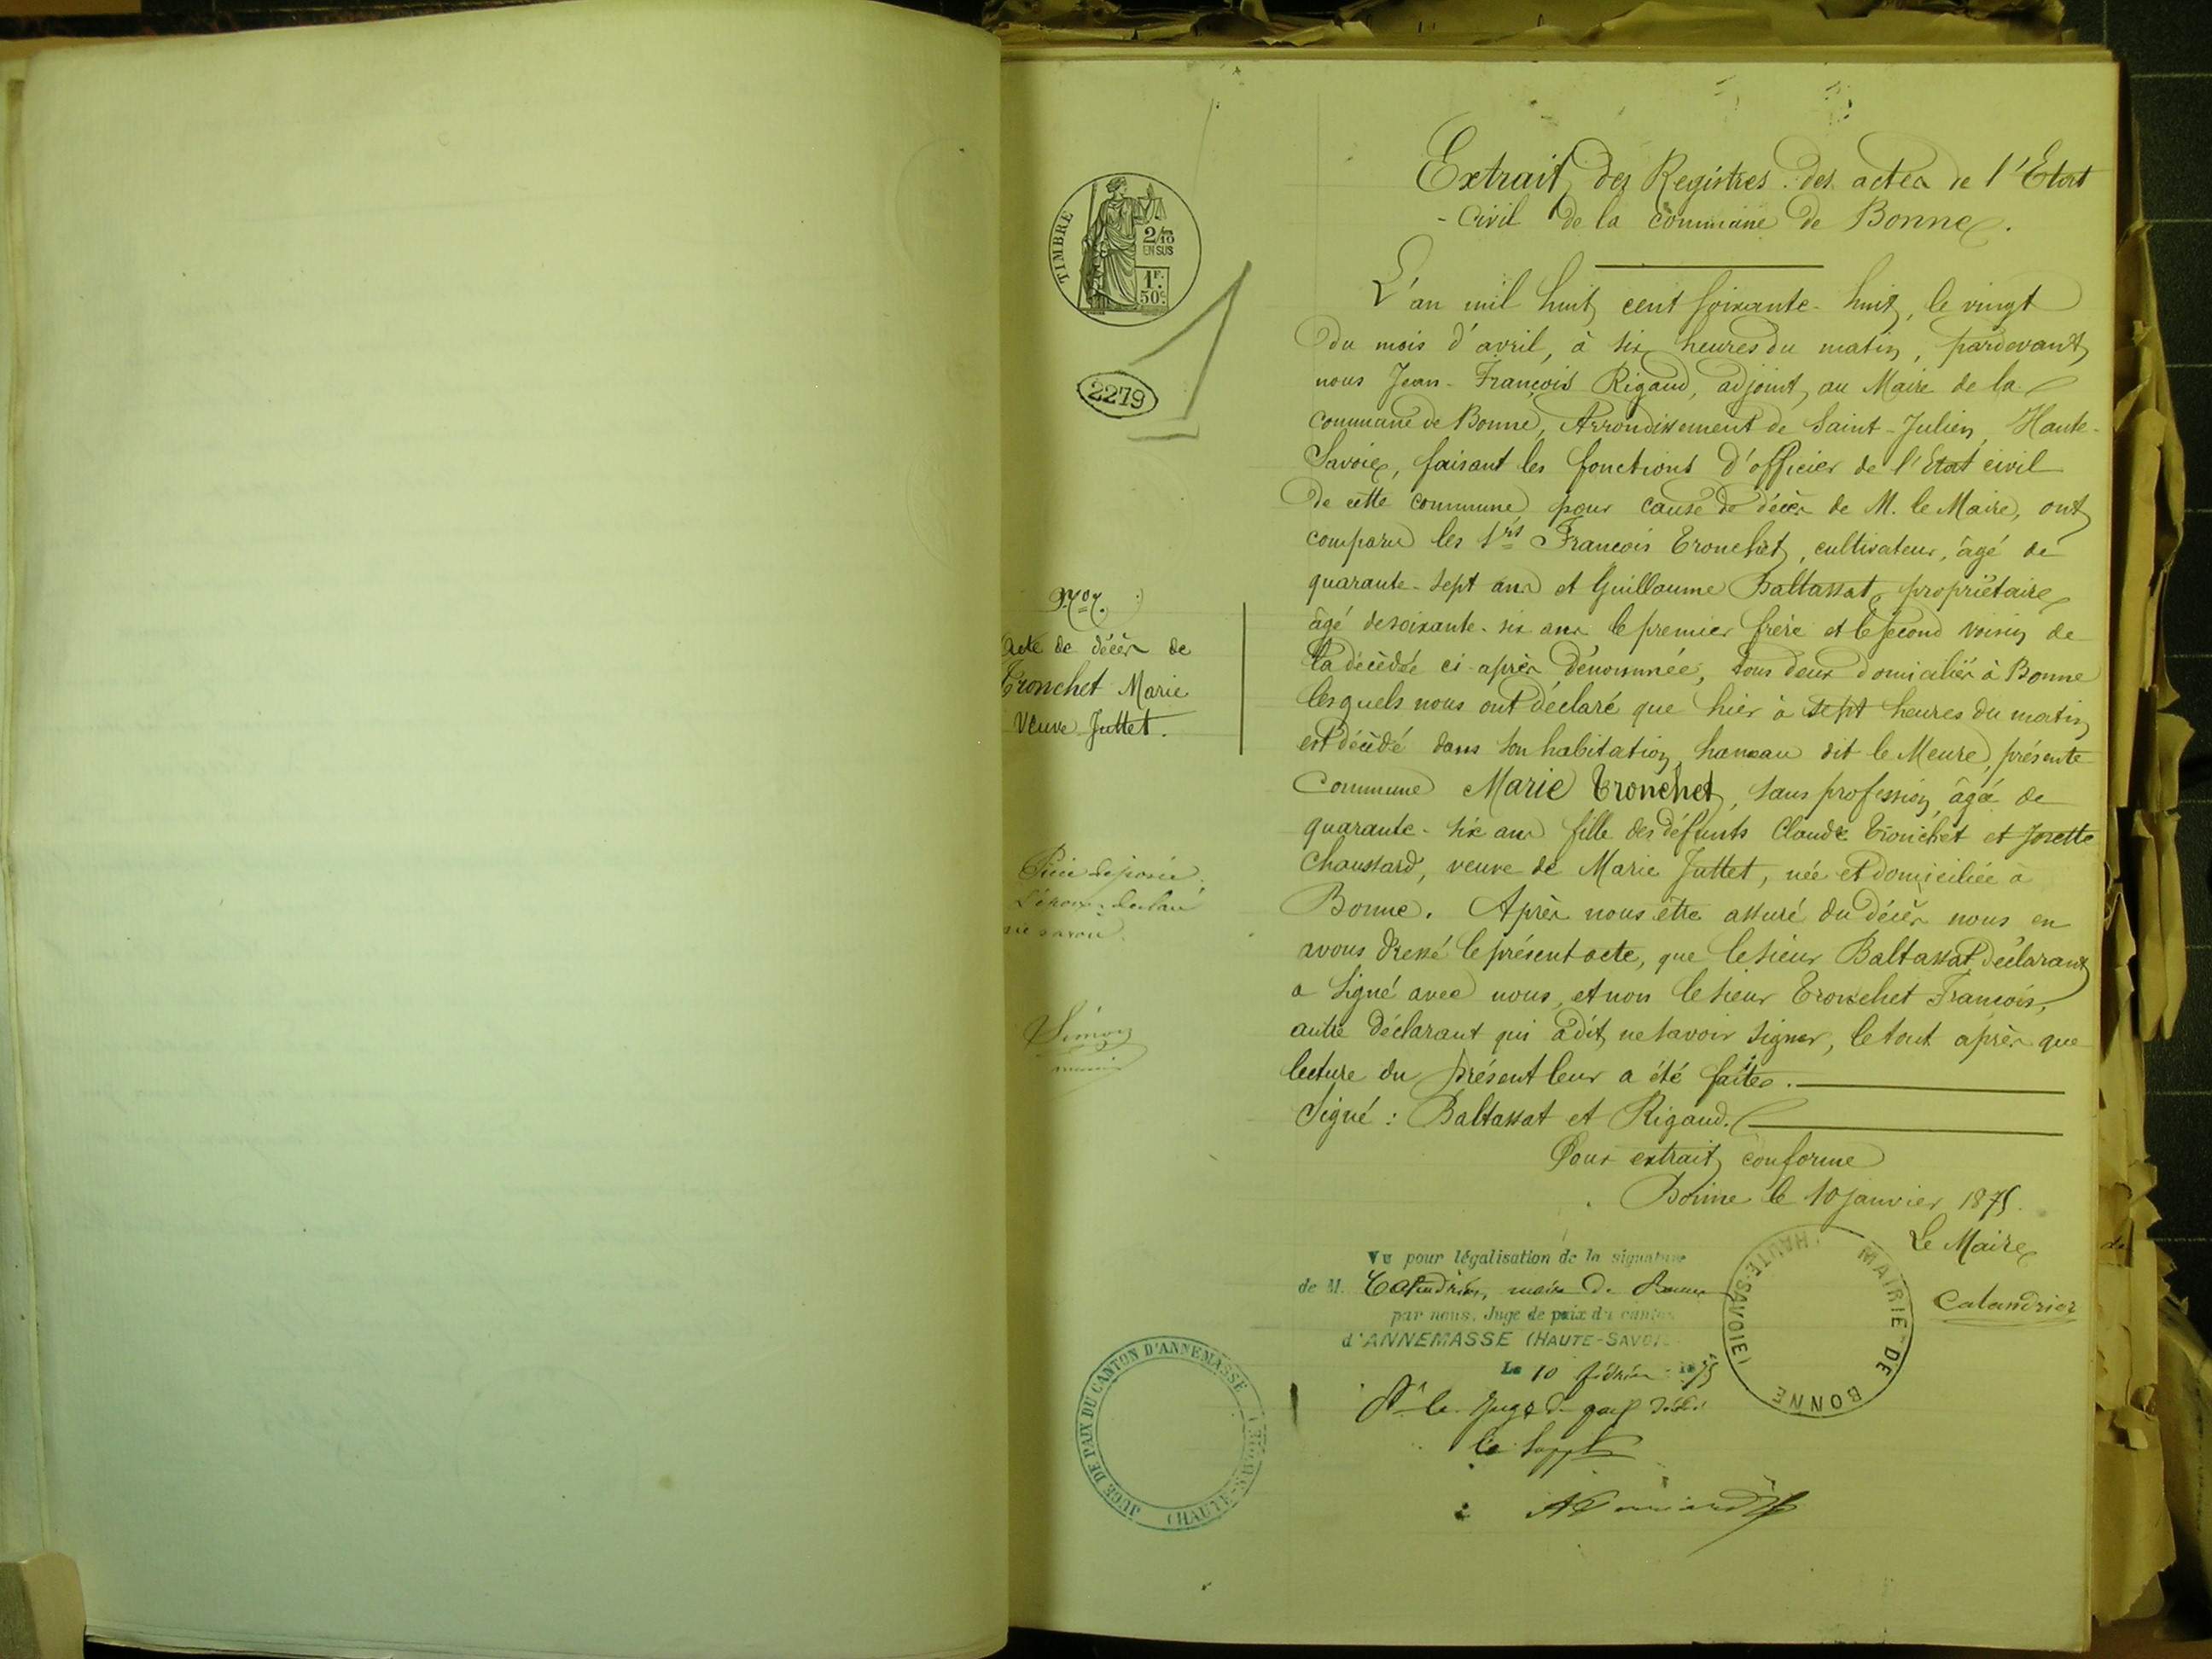 Extrait des Registres des actes de l'Etat
- Civil de la commune de Bonne.
TIMBRE
2/10
EN SUS
1F.
50c.
2279
L'an mil huit cent soixante-huit, le vingt
du mois d'avril, à six heures du matin, pardevant
nous Jean-François Rigaud, adjoint au Maire de la
commune de Bonne, Arrondissement de Saint-Julien, Haute-
Savoie, faisant les fonctions d'officier de l'Etat civil
de cette commune pour cause de décès de M. le Maire, ont
comparu les Srs François Tronchet, cultivateur, âgé de
quarante-sept ans et Guillaume Baltassat, propriétaire,
âgé de soixante-six ans le premier frère et le second voisin de
la décédée ci-après dénommée, tous deux domiciliés à Bonne
lesquels nous ont déclaré que hier à sept heures du matin
est décédé dans son habitation, hameau dit le Meure, présente
Commune Marie Tronchet, sans profession, âgée de
quarante-six ans fille des défunts Claude Tronchet et Josette
Chaussard, veuve de Marie Juttet, née et domiciliée à
Bonne. Après nous être assuré du décès nous en
avons dressé le présent acte, que le sieur Baltassat déclarant
a signé avec nous, et non le sieur Tronchet François,
autre déclarant qui a dit ne savoir signer, le tout après que
lecture du présent leur a été faite.
Signé : Baltassat et Rigaud.
Pour extrait conforme
Bonne le 10 janvier 1875.
Le Maire
Calandrier
Acte de décès de
Tronchet Marie
Veuve Juttet.
Pièce déposée.
L'époux déclaré
Simon
Vu pour légalisation de la signature
de M. Calandrier, maire de Bonne
par nous, Juge de paix du canton
d'ANNEMASSE (HAUTE-SAVOIE
Le 10 février 1875
Pr le Juge de paix
le suppt
MAIRIE DE BONNE (HAUTE-SAVOIE)
JUGE DE PAIX DU CANTON D'ANNEMASSE (HAUTE-SAVOIE)